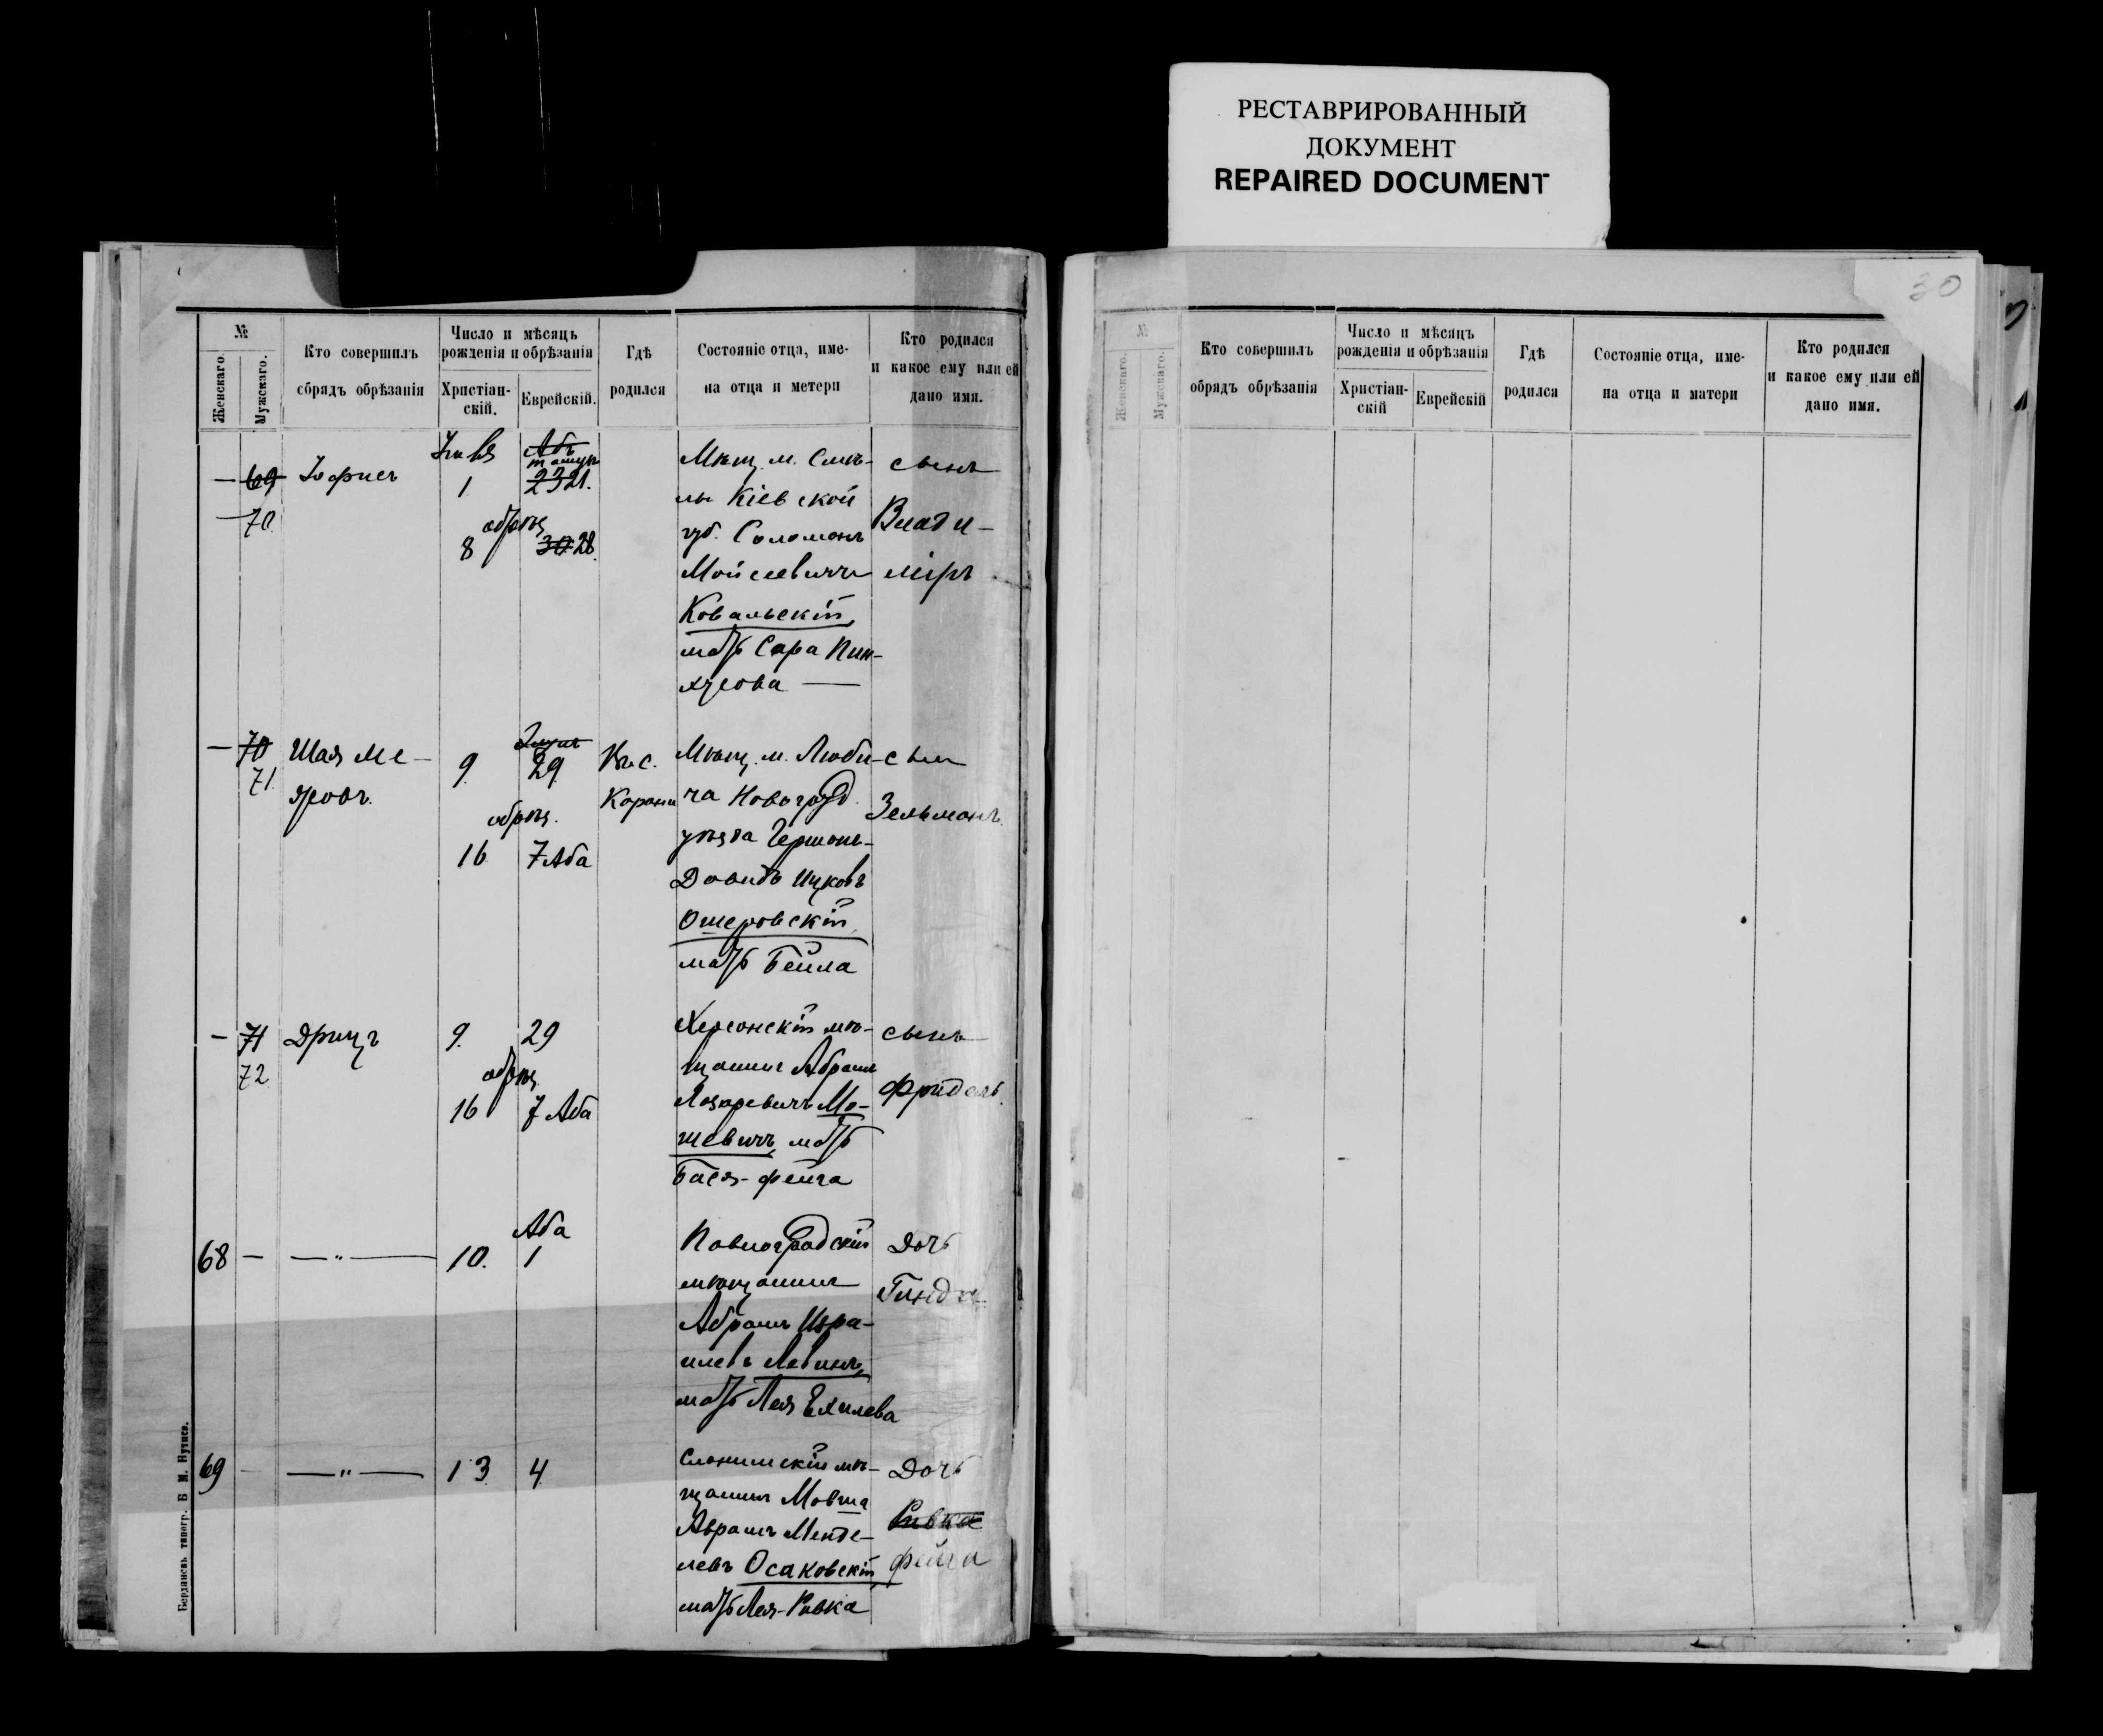 РЕСТАВРИРОВАННЫЙ
ДОКУМЕНТ
REPAIRED DOCUMENT
30
№
Женскаго.
Мужскаго.
Кто совершилъ
обрядъ обрѣзанія
Число и мѣсяцъ
рожденія и обрѣзанія
Христіан-
скій.
Еврейскій.
Гдѣ
родился
Состояніе отца, име-
на отца и метери
Кто родился
и какое ему или ей
дано имя.
— 69
— 70
1
23 21.
обрѣз
8 30 28.
Мѣщ. м. Смѣ-
лы Кіевской
губ. Соломонъ
Мойсеевичъ
Ковальскій,
мать Сара Пин-
хусова —
сынъ
Влади-
міръ
— 70
71.
Шая Ме-
еровъ.
9. 29
обрѣз.
16 7 Аба
Мѣщ. м. Люби-
ча Новогруд.
уѣзда Гершонъ-
Довидъ Ицковъ
Ошеровскій,
мать Бейла
сынъ
Зельманъ.
— 71
72
Дрицъ
9. 29
обрѣз
16 7 Аба
Херсонскій мѣ-
щанинъ Абрамъ
Лазаревичъ Мо-
шевичъ, мать
Бася-Фейга
сынъ
Фридель.
68 — — " —
10. Аба
1
Павлоградскій
мѣщанинъ
Абрамъ Изра-
илевъ Левинъ,
мать Лея Ехилева
Дочь
69 — — " —
13 4
Слонимскій мѣ-
щанинъ Мовша
Аврамъ Менде-
левъ Осаковскій,
мать Лея-Ривка
Дочь
Ривка
Фейга
Бердянскъ типогр. Б М.
№
Женскаго.
Мужскаго.
Кто совершилъ
обрядъ обрѣзанія
Число и мѣсяцъ
рожденія и обрѣзанія
Христіан-
скій
Еврейскій
Гдѣ
родился
Состояніе отца, име-
на отца и матери
Кто родился
и какое ему или ей
дано имя.